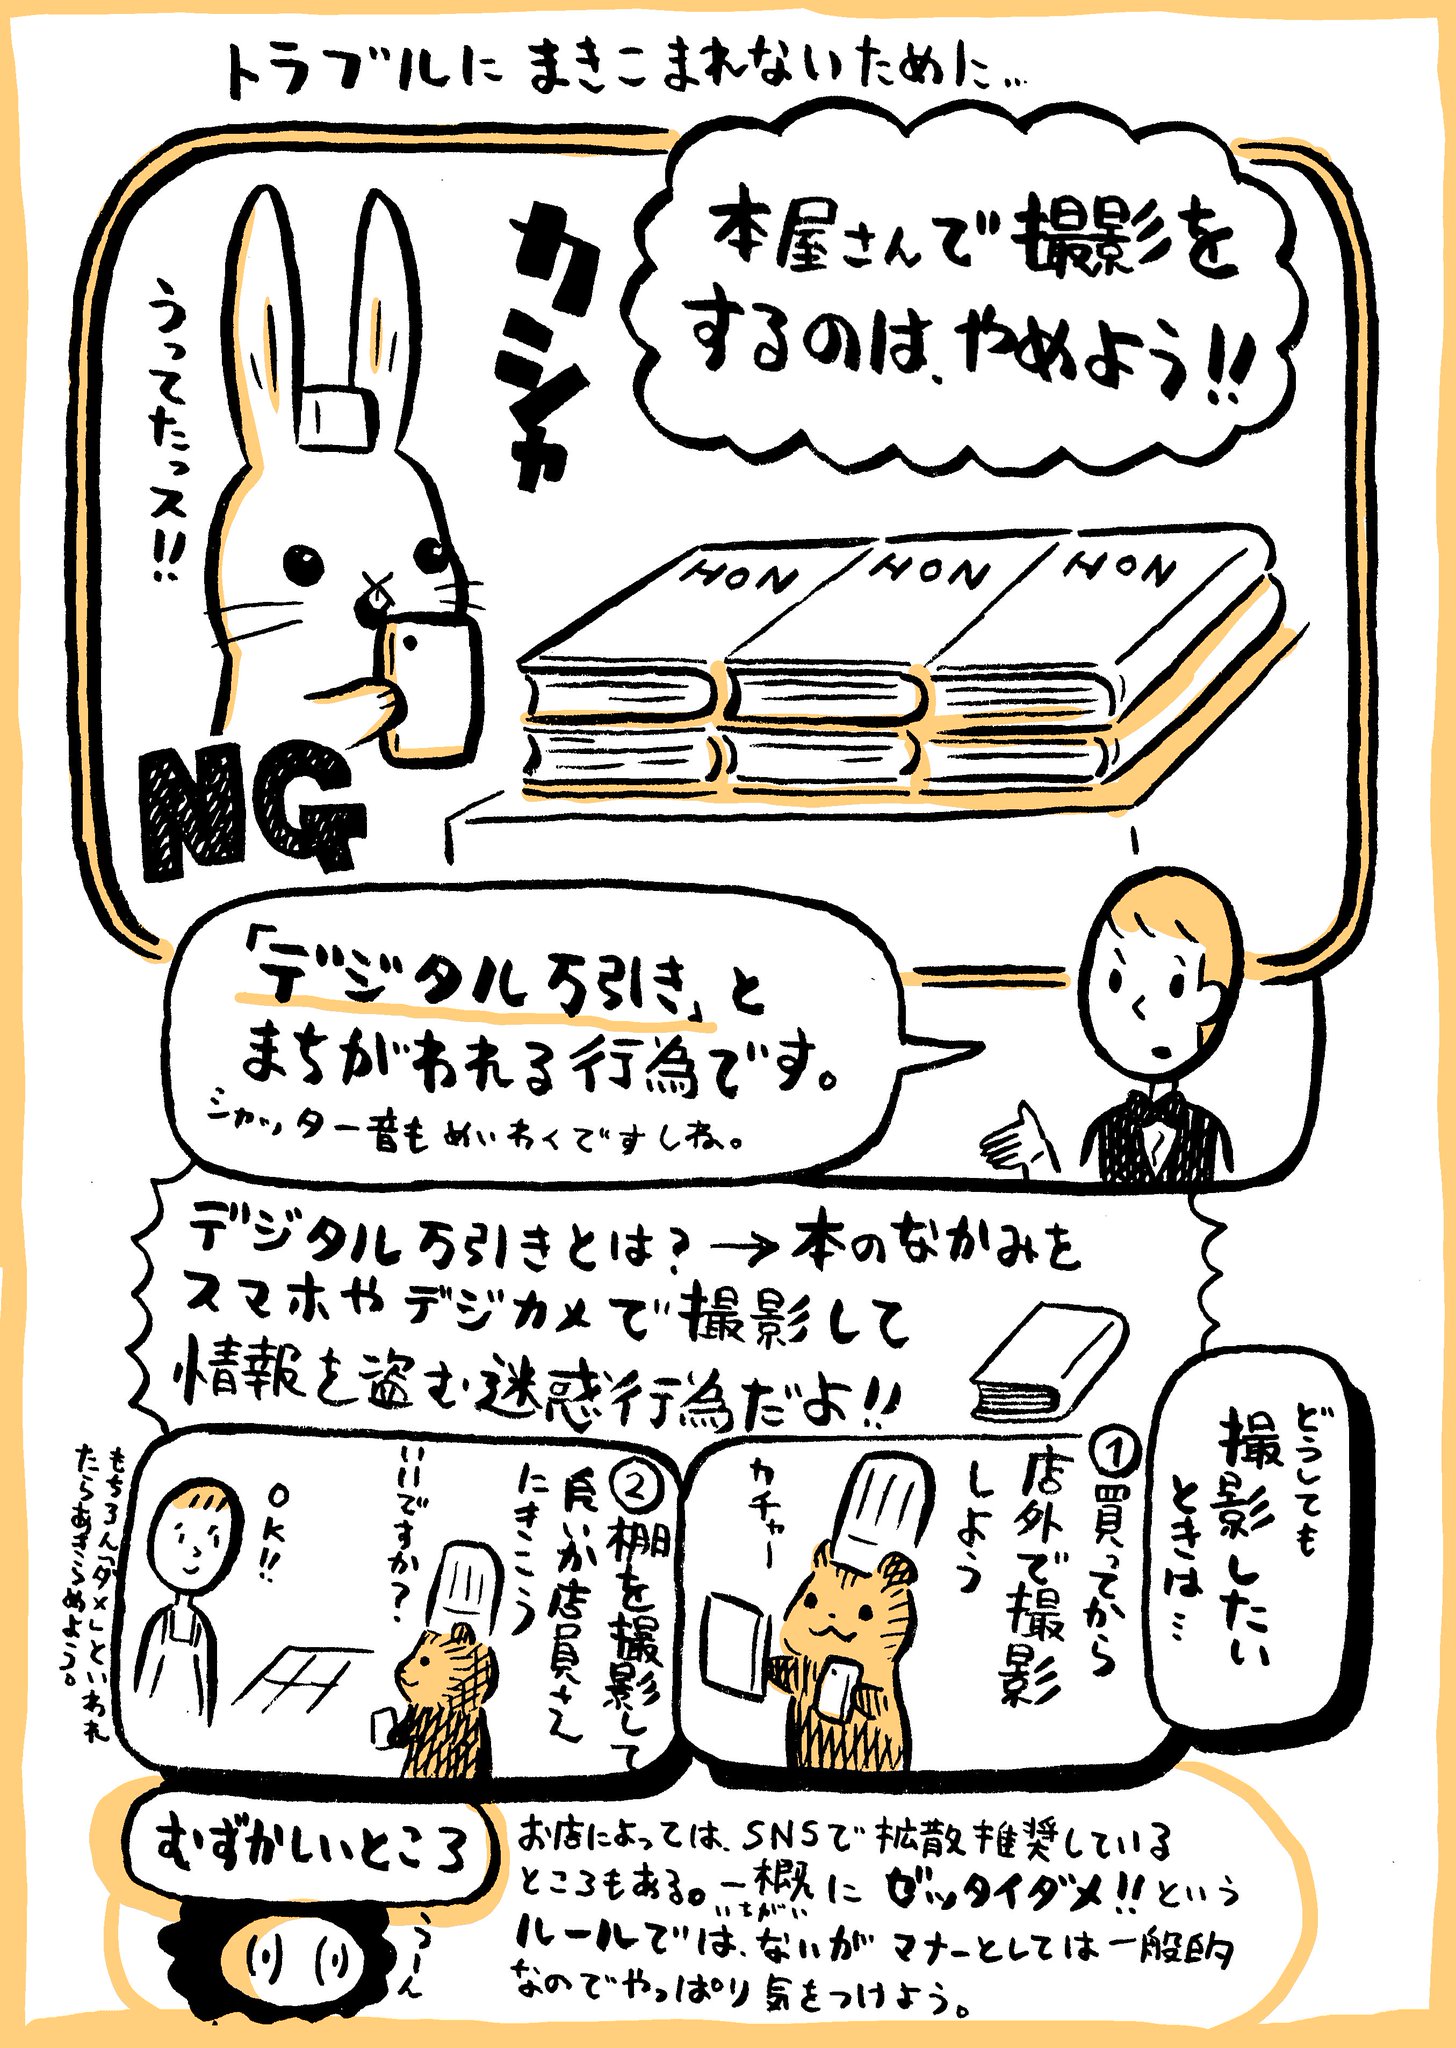 トラブルにまきこまれないために…
本屋さんで撮影を
するのは、やめよう!!
カシャ
うってたっス!!
HON HON HON
NG
「デジタル万引き」と
まちがわれる行為です。
シャッター音もめいわくですしね。
デジタル万引きとは?→本のなかみを
スマホやデジカメで撮影して
情報を盗む迷惑行為だよ!!
どうしても
撮影したい
ときは…
①買ってから
店外で撮影
しよう
カチャー
②棚を撮影して
良いか店員さん
にきこう
いいですか?
OK!!
もちろん「ダメ」といわれ
たらあきらめよう。
むずかしいところ
うーん
お店によっては、SNSで拡散推奨している
ところもある。一概にゼッタイダメ!!という
いちがい
ルールでは、ないがマナーとしては一般的
なのでやっぱり気をつけよう。